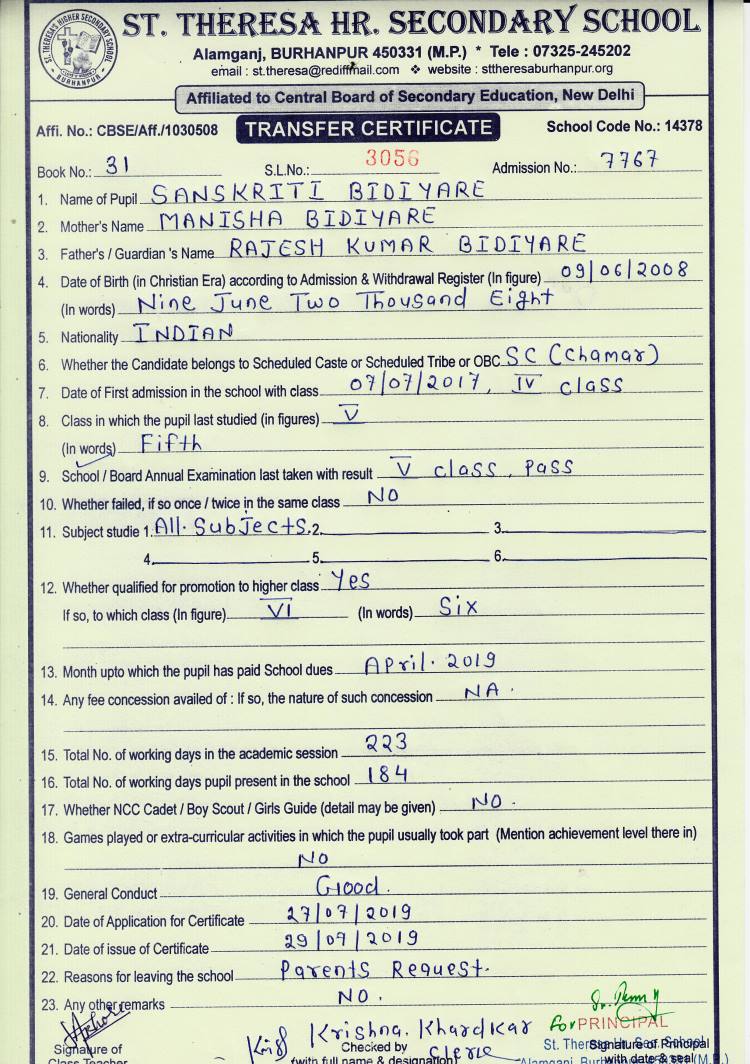 ST. THERESA HR. SECONDARY SCHOOL
Alamganj, BURHANPUR 450331 (M.P.) * Tele : 07325-245202
email : st.theresa@rediffmail.com ❖ website : sttheresaburhanpur.org
Affiliated to Central Board of Secondary Education, New Delhi
ST. THERESA'S HIGHER SECONDARY SCHOOL
BURHANPUR
Affi. No.: CBSE/Aff./1030508 TRANSFER CERTIFICATE School Code No.: 14378
Book No.: 31 S.L.No.: 3056 Admission No.: 7767
1. Name of Pupil SANSKRITI BIDIYARE
2. Mother's Name MANISHA BIDIYARE
3. Father's / Guardian 's Name RAJESH KUMAR BIDIYARE
4. Date of Birth (in Christian Era) according to Admission & Withdrawal Register (In figure) 09/06/2008
(In words) Nine June Two Thousand Eight
5. Nationality INDIAN
6. Whether the Candidate belongs to Scheduled Caste or Scheduled Tribe or OBC SC (Chamar)
7. Date of First admission in the school with class 07/07/2017, IV class
8. Class in which the pupil last studied (in figures) V
(In words) Fifth
9. School / Board Annual Examination last taken with result V class, Pass
10. Whether failed, if so once / twice in the same class NO
11. Subject studie 1. All. Subjects. 2. 3.
4. 5. 6.
12. Whether qualified for promotion to higher class Yes
If so, to which class (In figure) VI (In words) Six
13. Month upto which the pupil has paid School dues April. 2019
14. Any fee concession availed of : If so, the nature of such concession NA.
15. Total No. of working days in the academic session 223
16. Total No. of working days pupil present in the school 184
17. Whether NCC Cadet / Boy Scout / Girls Guide (detail may be given) NO.
18. Games played or extra-curricular activities in which the pupil usually took part (Mention achievement level there in)
NO
19. General Conduct Good.
20. Date of Application for Certificate 27/07/2019
21. Date of issue of Certificate 29/07/2019
22. Reasons for leaving the school Parents Request.
23. Any other remarks NO.
for PRINCIPAL
Krishna. Khardkar
Signature of Checked by Clerk St. Theresa Hr. Sec. School Signature of Principal
Class Teacher (with full name & designation) Alamganj, with date & seal (M.P.)